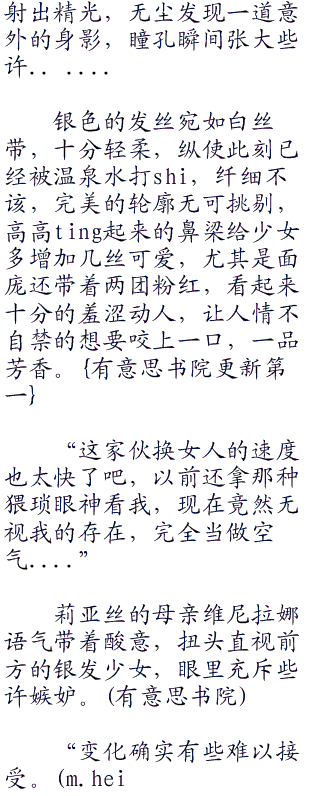 射出精光，无尘发现一道意
外的身影，瞳孔瞬间张大些
许.. ....
银色的发丝宛如白丝
带，十分轻柔，纵使此刻已
经被温泉水打shi，纤细不
该，完美的轮廓无可挑剔，
高高ting起来的鼻梁给少女
多增加几丝可爱，尤其是面
庞还带着两团粉红，看起来
十分的羞涩动人，让人情不
自禁的想要咬上一口，一品
芳香。{有意思书院更新第
一}
“这家伙换女人的速度
也太快了吧，以前还拿那种
猥琐眼神看我，现在竟然无
视我的存在，完全当做空
气....”
莉亚丝的母亲维尼拉娜
语气带着酸意，扭头直视前
方的银发少女，眼里充斥些
许嫉妒。(有意思书院)
“变化确实有些难以接
受。(m.hei